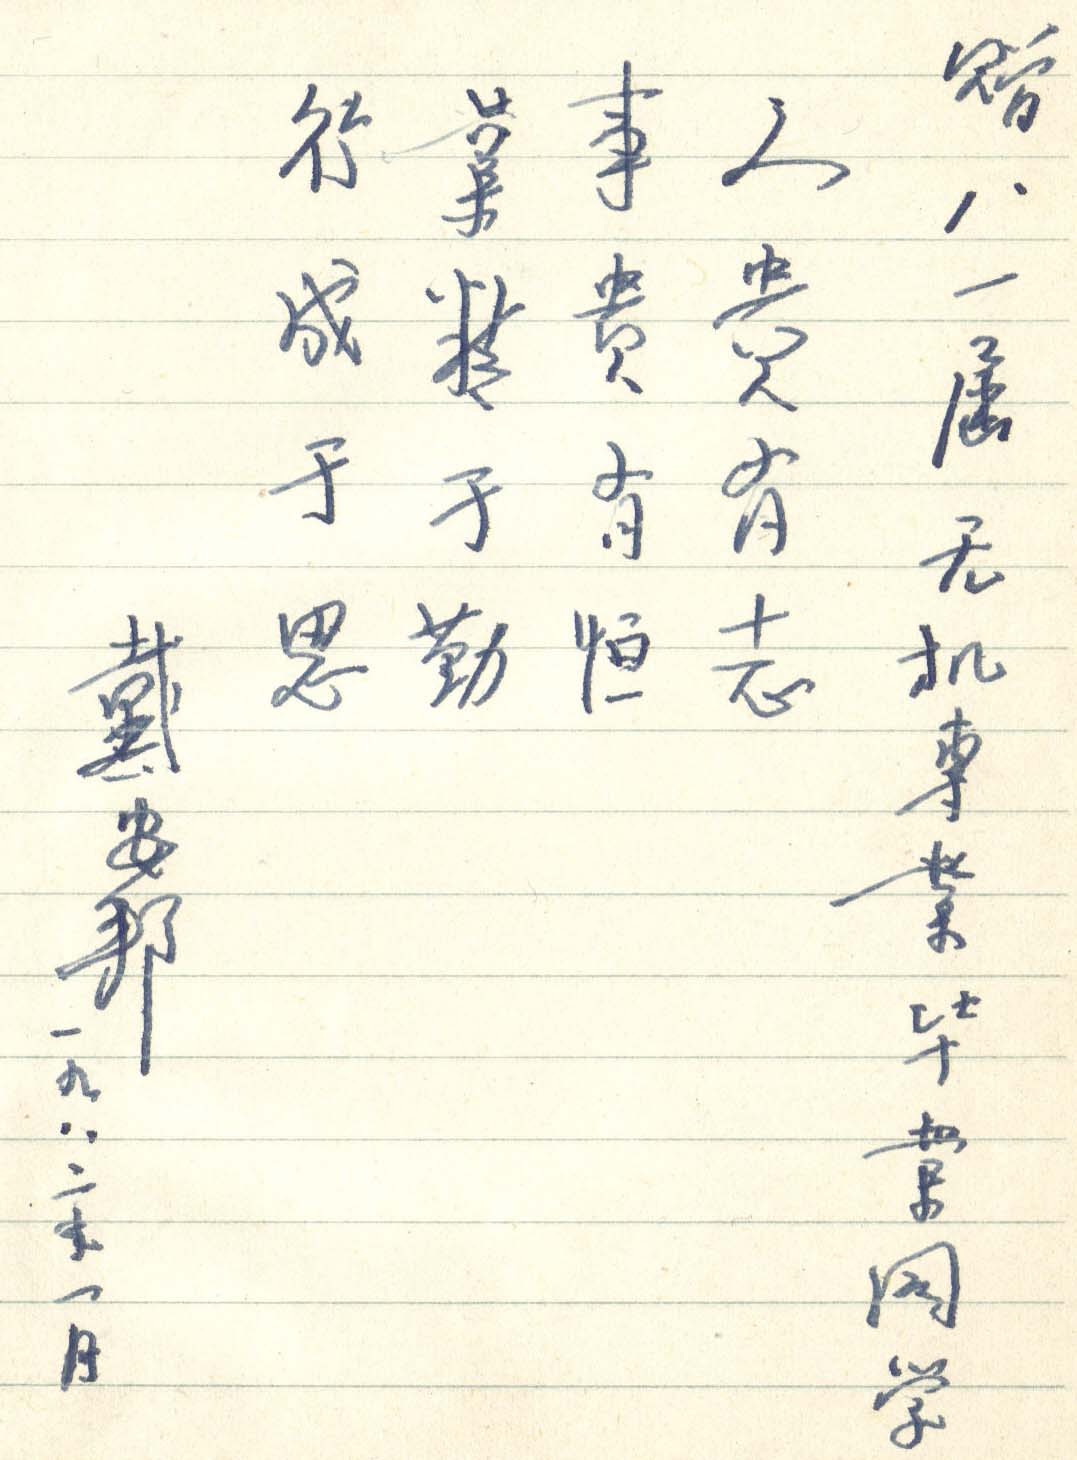 赠八一届无机专业毕业同学
人贵有志
事贵有恒
業精于勤
行成于思
戴安邦
一九八二年一月